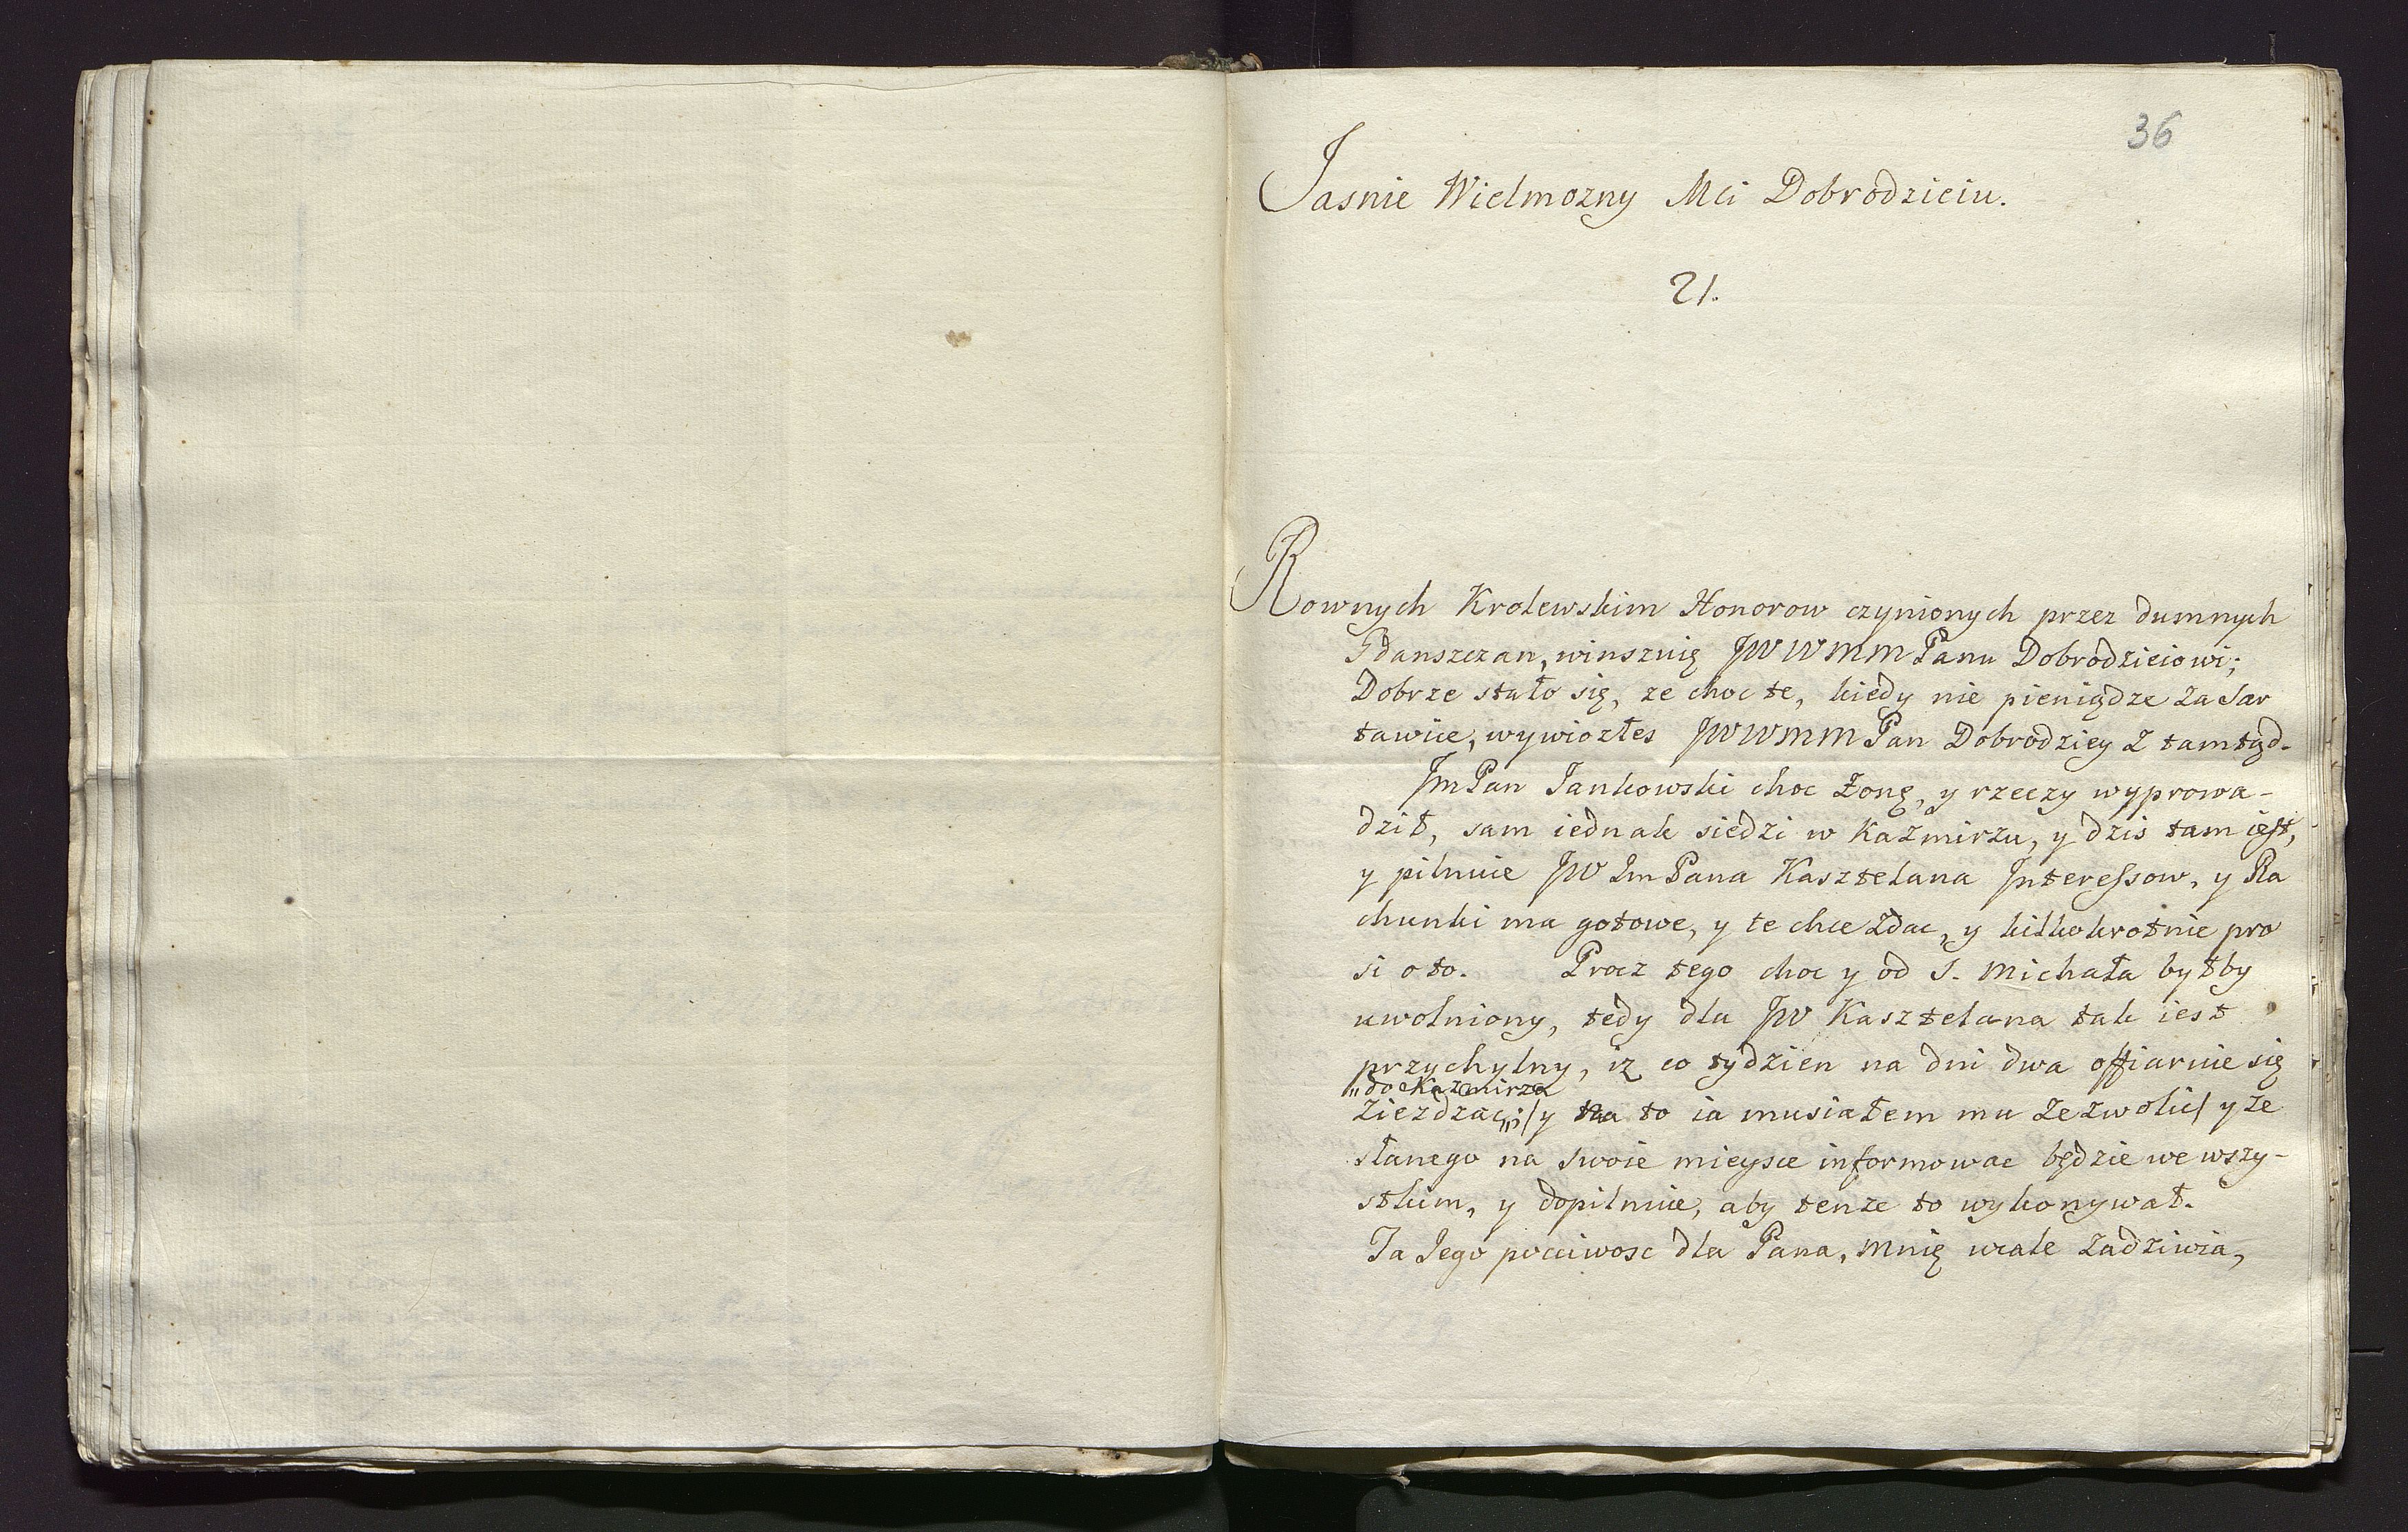 36
Jasnie Wielmozny Mci Dobrodzieiu.
21.
Rownych Krolewskim Honorow czynionych przez dumnych
Gdanszczan, winszuię JWWMMPanu Dobrodzieiowi;
Dobrze stało się, ze choc te, kiedy nie pieniądze za Sar
tawice, wywiozłes JWWMMPan Dobrodziey z tamtąd.
JmPan Jankowski choc Zonę, y rzeczy wyprowa-
dził, sam iednak siedzi w Kazmirzu, y dzis tam iest,
y pilnuie JW ImPana Kasztelana Interessow, y Ra
chunki ma gotowe, y te chce zdac, y kilkokrotnie pro
si o to. Procz tego choc y od S. Michała byłby
uwolniony, tedy dla JW Kasztelana tak iest
przychylny, iz co tydzien na dni dwa offiaruie się
„do Kazmirza
Ziezdzac„ :/ y na to ia musiałem mu zezwolic/ y ze
słanego na swoie mieysce informowac będzie we wszy-
stkim, y dopilnuie, aby tenze to wykonywał.
Ta Jego pocciwosc dla Pana, mnię wcale zadziwia,